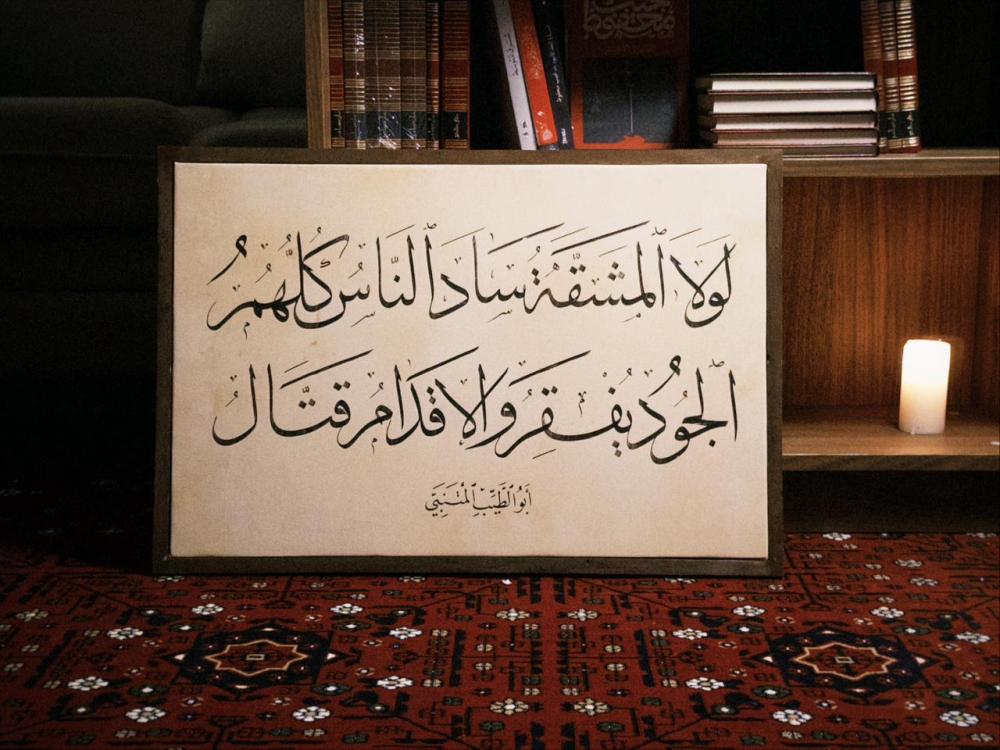 لَوْلَا ٱلْمَشَقَّةُ سَادَ ٱلنَّاسُ كُلُّهُمُ
ٱلْجُودُ يُفْقِرُ وَٱلْإِقْدَامُ قَتَّالُ
أَبُو ٱلطَّيِّبِ ٱلْمُتَنَبِّي